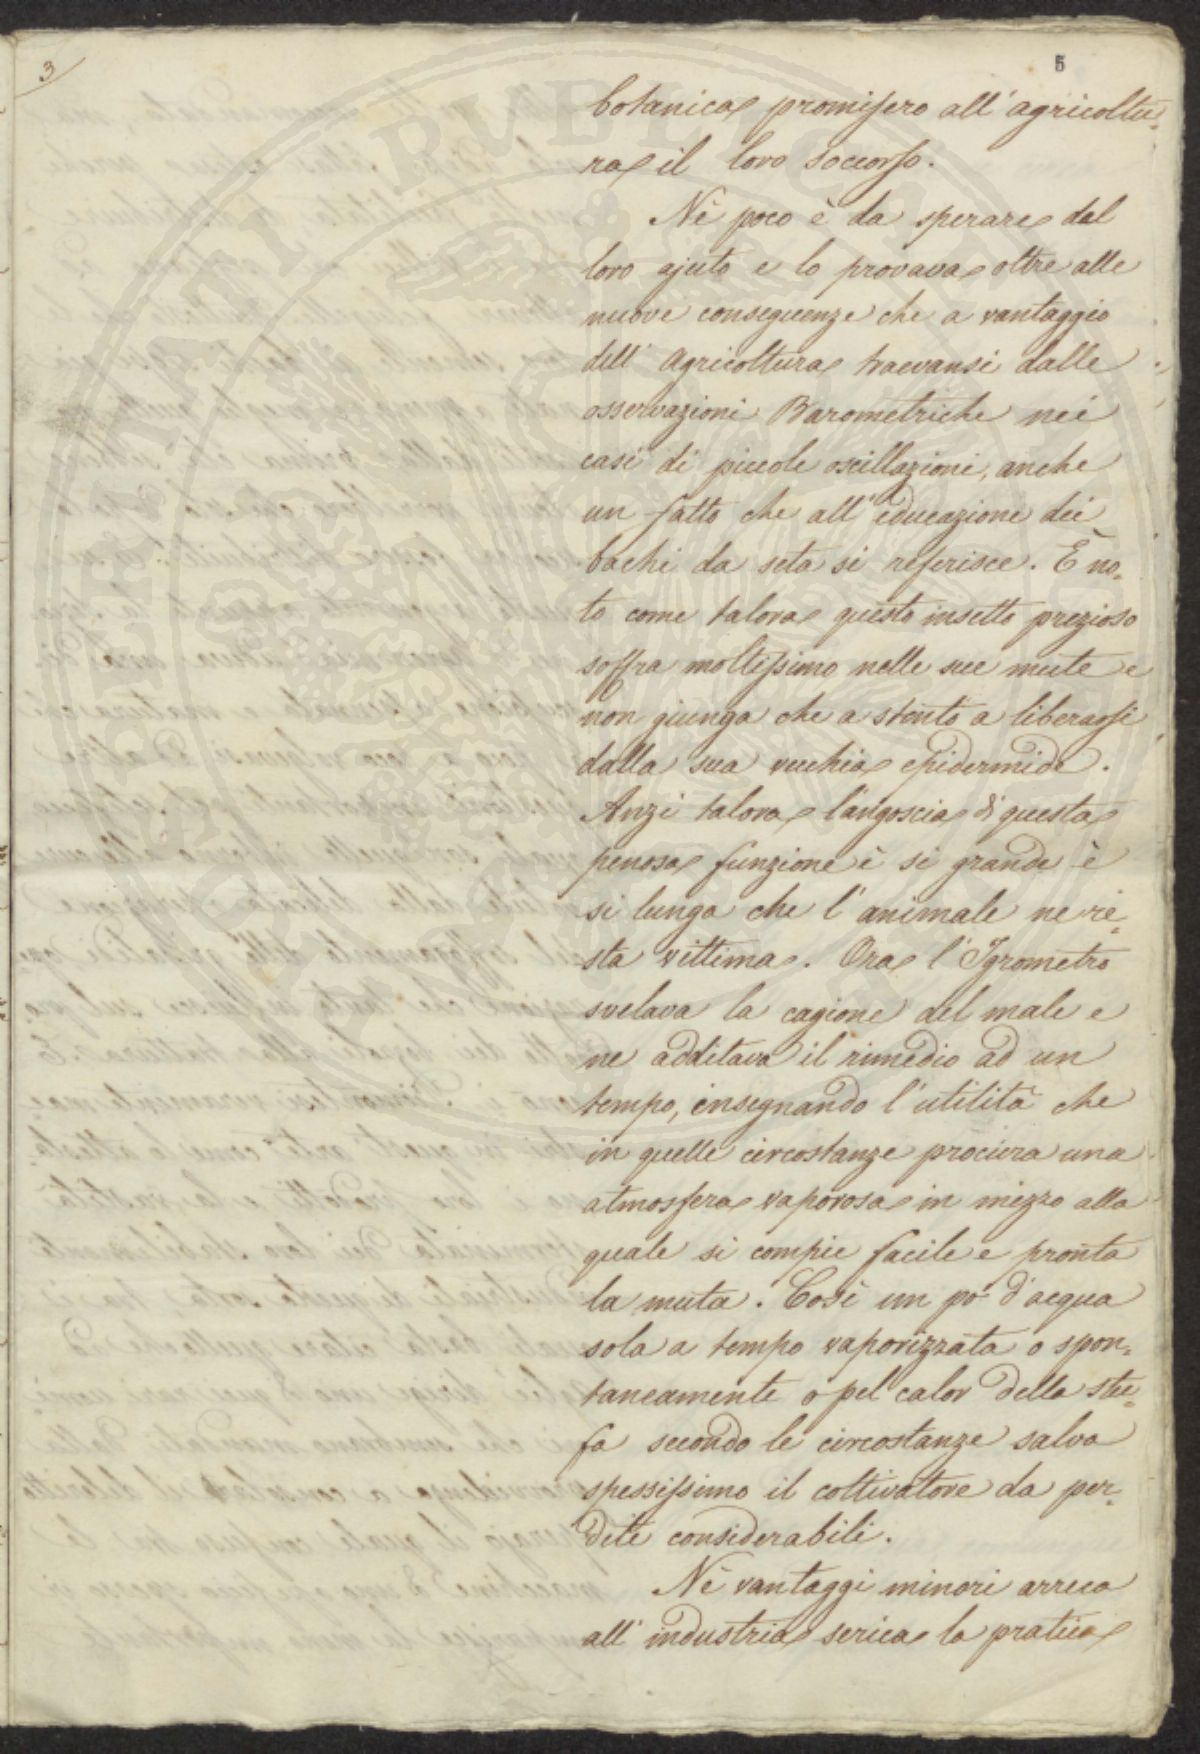 3
5
botanica promisero all'agricoltu-
ra il loro soccorso.
Nè poco è da sperare dal
loro ajuto e lo provava oltre alle
nuove conseguenze che a vantaggio
dell'Agricoltura traevansi dalle
osservazioni Barometriche nei
casi di piccole oscillazioni, anche
un fatto che all'educazione dei
bachi da seta si referisce. È no-
to come talora questo insetto prezioso
soffra moltissimo nelle sue mute e
non giunga che a stento a liberarsi
dalla sua vecchia epidermide.
Anzi talora l'angoscia di questa
penosa funzione è si grande è
si lunga che l'animale ne re-
sta vittima. Ora l'Igrometro
svelava la cagione del male e
ne additava il rimedio ad un
tempo, insegnando l'utilità che
in quelle circostanze procura una
atmosfera vaporosa in mezzo alla
quale si compie facile e pronta
la muta. Così un po' d'acqua
sola a tempo vaporizzata o spon-
taneamente o pel calor della stu-
fa secondo le circostanze salva
spessissimo il coltivatore da per-
dite considerabili.
Nè vantaggi minori arreca
all'industria serica la pratica